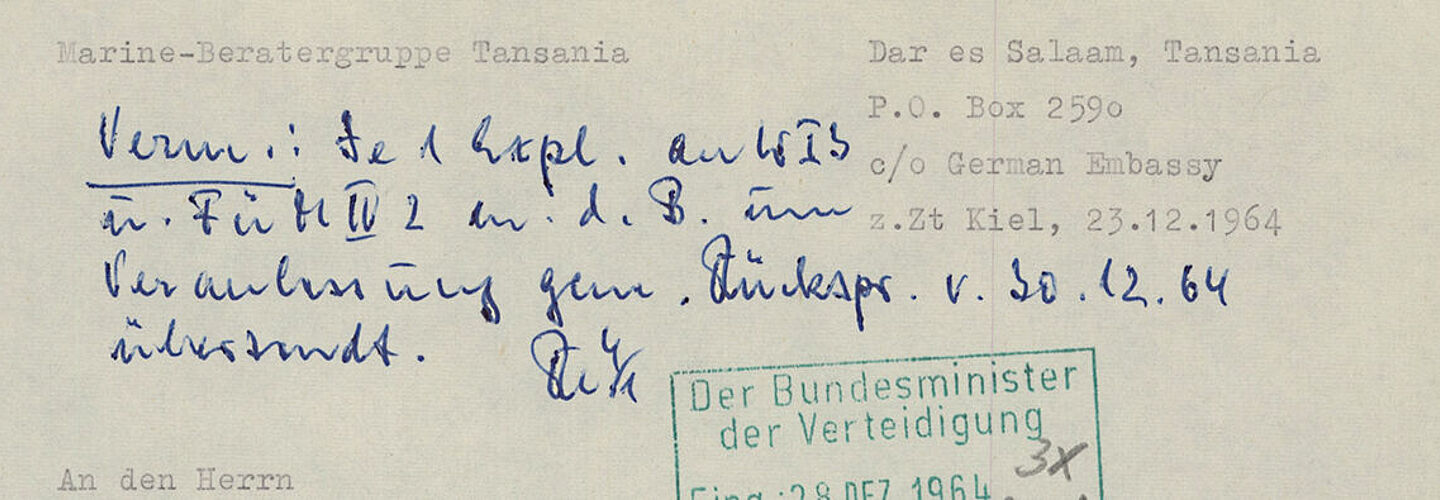 Marine-Beratergruppe Tansania
Dar es Salaam, Tansania
P.O. Box 259o
c/o German Embassy
z.Zt Kiel, 23.12.1964
Verm.: Je 1 Expl. an W I 3
u. Fü M IV 2 m. d. B. um
Veranlassung gem. Rückspr. v. 30.12.64
übersandt.
Der Bundesminister
der Verteidigung
3x
Eing.: 28. DEZ. 1964
An den Herrn